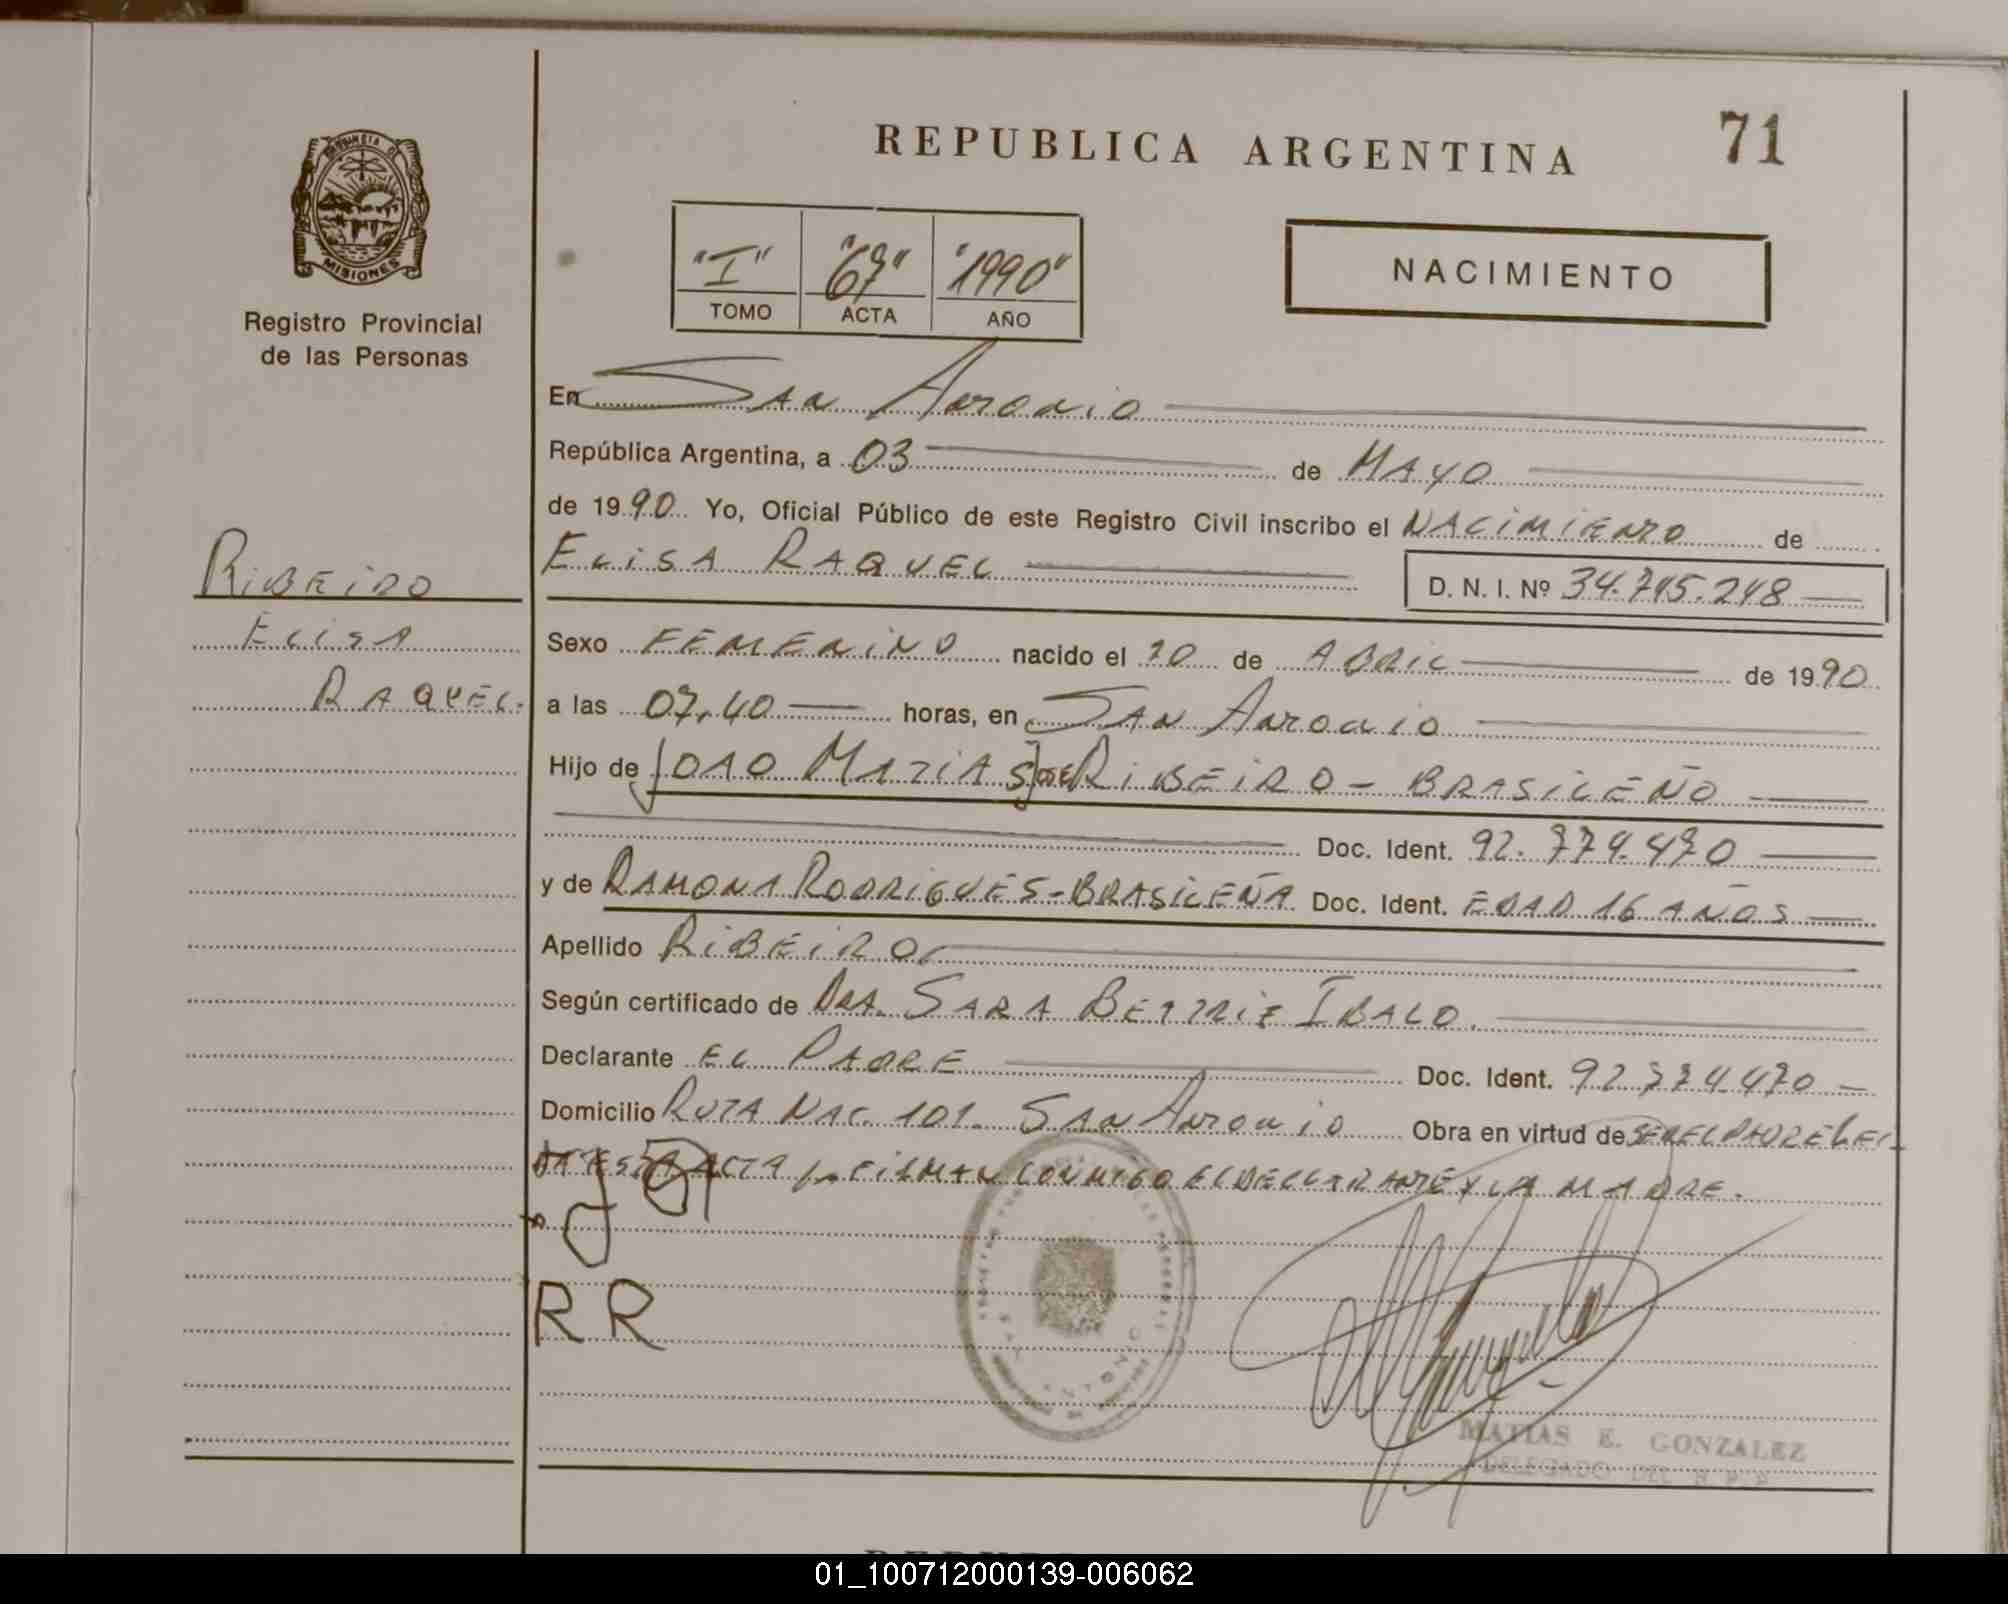 PROVINCIA DE
MISIONES
Registro Provincial
de las Personas
REPUBLICA ARGENTINA
71
"I" "67" "1990"
TOMO ACTA AÑO
NACIMIENTO
En SAN ANTONIO
República Argentina, a 03 de MAYO
de 1990 Yo, Oficial Público de este Registro Civil inscribo el NACIMIENTO de
ELISA RAQUEL D. N. I. Nº 34.745.248
RIBEIRO
ELISA
RAQUEL.
Sexo FEMENINO nacido el 20 de ABRIL de 1990
a las 07,40 horas, en SAN ANTONIO
Hijo de JOAO MARIA RIBEIRO - BRASILEÑO
Doc. Ident. 92.774.470
y de RAMONA RODRIGUES-BRASILEÑA Doc. Ident. EDAD 16 AÑOS
Apellido RIBEIRO
Según certificado de DRA. SARA BEATRIZ IBALO.
Declarante EL PADRE Doc. Ident. 92.774.470
Domicilio RUTA NAC. 101. SAN ANTONIO Obra en virtud de SER EL PADRE LEI-
DA ESTA ACTA FIRMAN CONMIGO EL DECLARANTE Y LA MADRE.
RR
MATIAS E. GONZALEZ
DELEGADO DEL R. P. P.
01_100712000139-006062